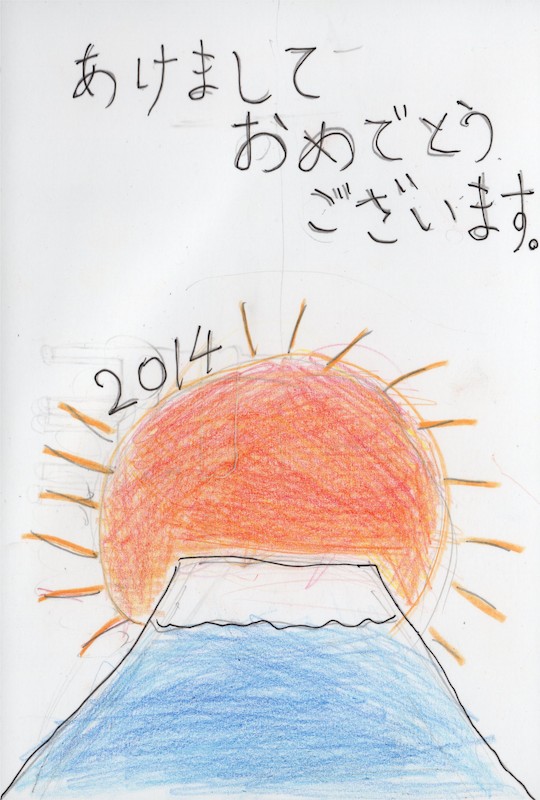 あけまして
おめでとう
ございます。
2014